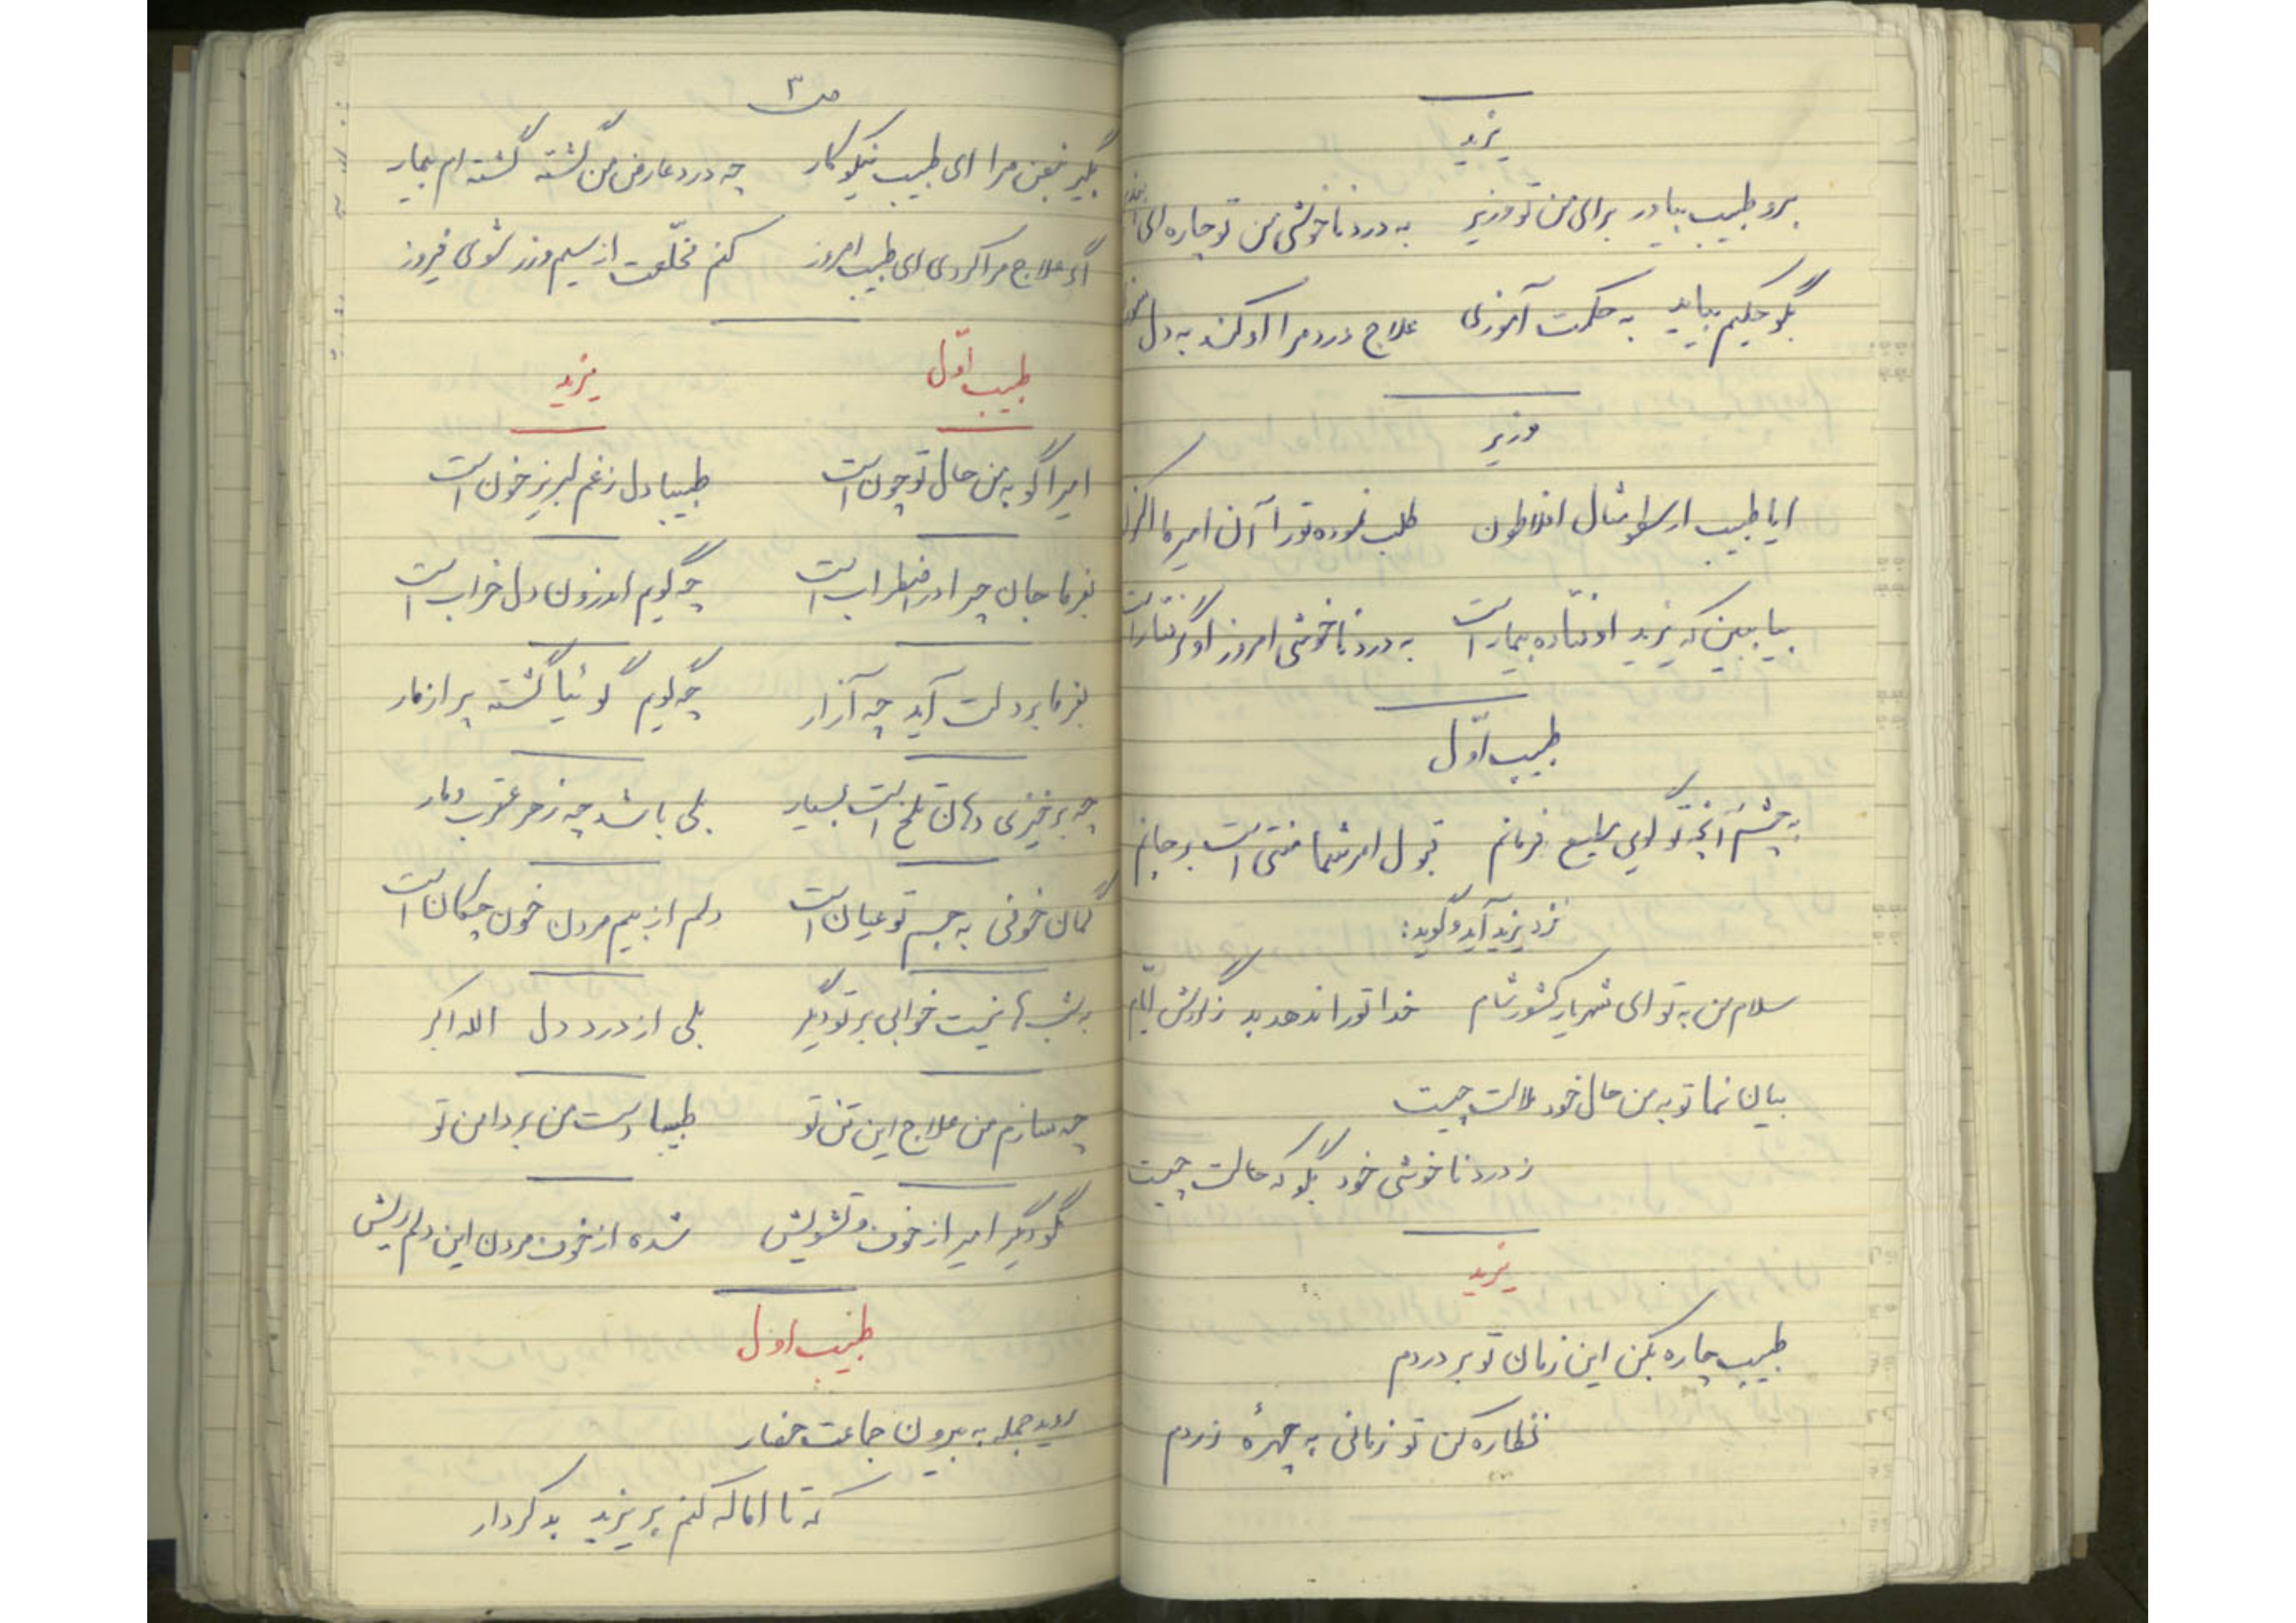 یزید
برو طبیب بیاور برای من تو وزیر به درد ناخوشی من تو چاره ای
بگو حکیم بیاید به حکمت آموزی علاج درد مرا او کند به دل
وزیر
ایا طبیب ارسطو مثال افلاطون طلب نموده تو را آن امیر ما اکنون
بیا ببین که یزید اوفتاده بیمار است به درد ناخوشی امروز او گرفتار است
طبیب اوّل
به چشم آنچه تو گویی مطیع فرمانم قبول امر شما منتی است بر جانم
نزد یزید آید و گوید:
سلام من به تو ای شهریار کشور شام خدا تو را ندهد بد ز گردش ایّام
بیان نما تو به من حال خود ملالت چیست
ز درد ناخوشی خود بگو که حالت چیست
یزید
طبیب چاره بکن این زمان تو بر دردم
نظاره کن تو زمانی به چهرهٔ زردم
ص ۳
بگیر نبض مرا ای طبیب نیکو کار چه درد عارض من گشته گشته ام بیمار
اگر علاج مرا کردی ای طبیب امروز کنم مخلّعت از سیم و زر شوی فیروز
طبیب اوّل یزید
امیرا گو به من حال تو چون است طبیبا دل ز غم لبریز خون است
بفرما جان چرا در اضطراب است چه گویم اندرون دل خراب است
بفرما بر دلت آید چه آزار چه گویم گوئیا گشته پر از مار
چه برخیزی دهان تلخ است بسیار بلی باشد چه زهر عقرب و مار
گمان خونی به جسم تو عیان است دلم از بیم مردن خون چکان است
به شب ها نیست خوابی بر تو دیگر بلی از درد دل الله اکبر
چه سازم من علاج این تن تو طبیبا دست من بر دامن تو
بگو دیگر امیر از خوف و تشویش شده از خوف مردن این دلم ریش
طبیب اوّل
روید جمله به بیرون جماعت حضار
که تا اماله کنم بر یزید بد کردار